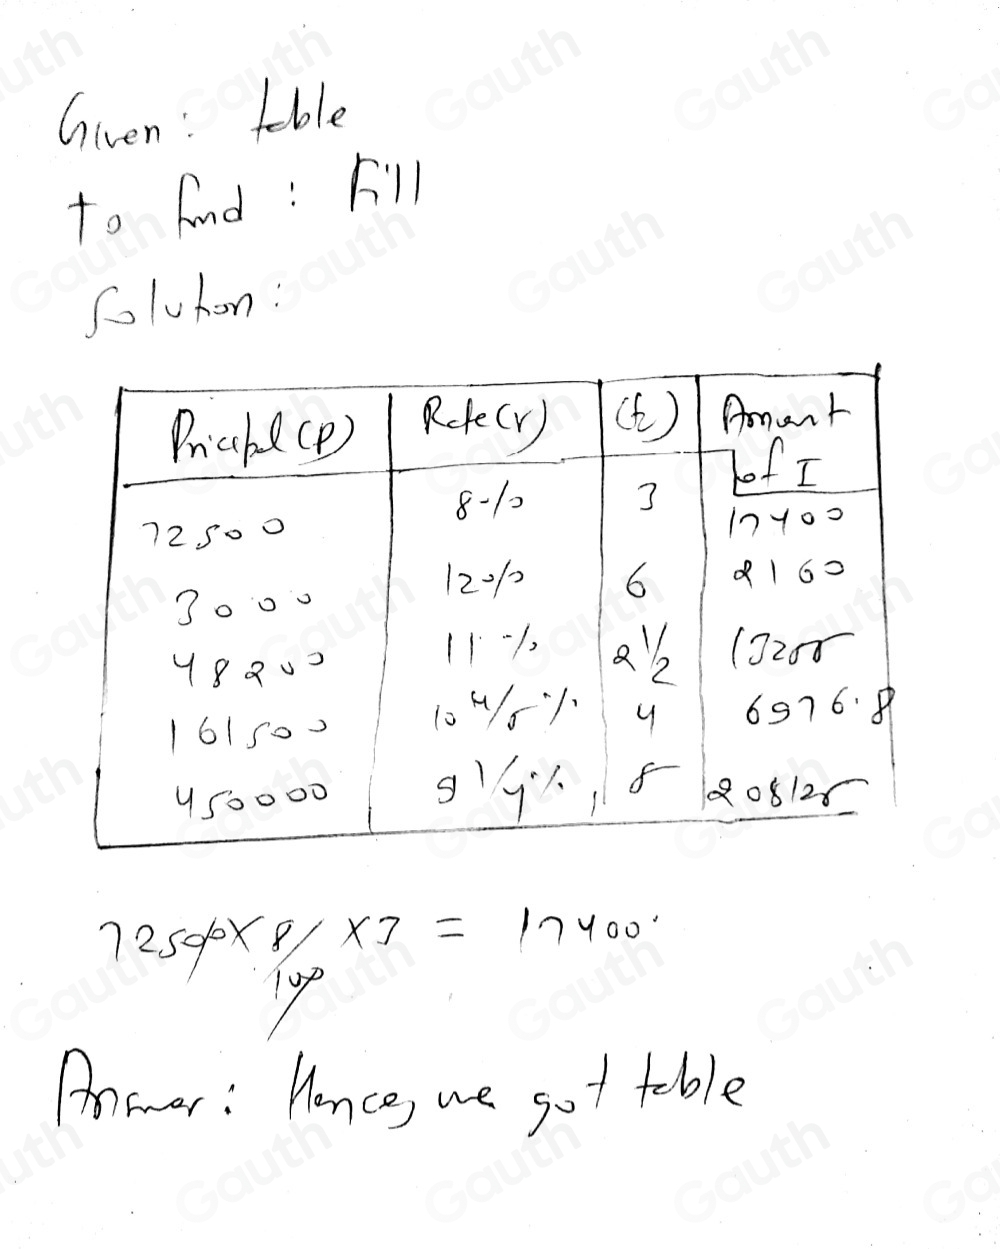 Given: table
To find: Fill
Solution:
Pricipal (P) Rate (r) (t) Amount of I
72500 8% 3 17400
3000 12% 6 2160
48200 11% 2 1/2 13255
161500 10 4/5 % 4 6976.8
450000 9 1/4 % 5 208125
72500 × 8/100 × 3 = 17400
Answer: Hence, we got table